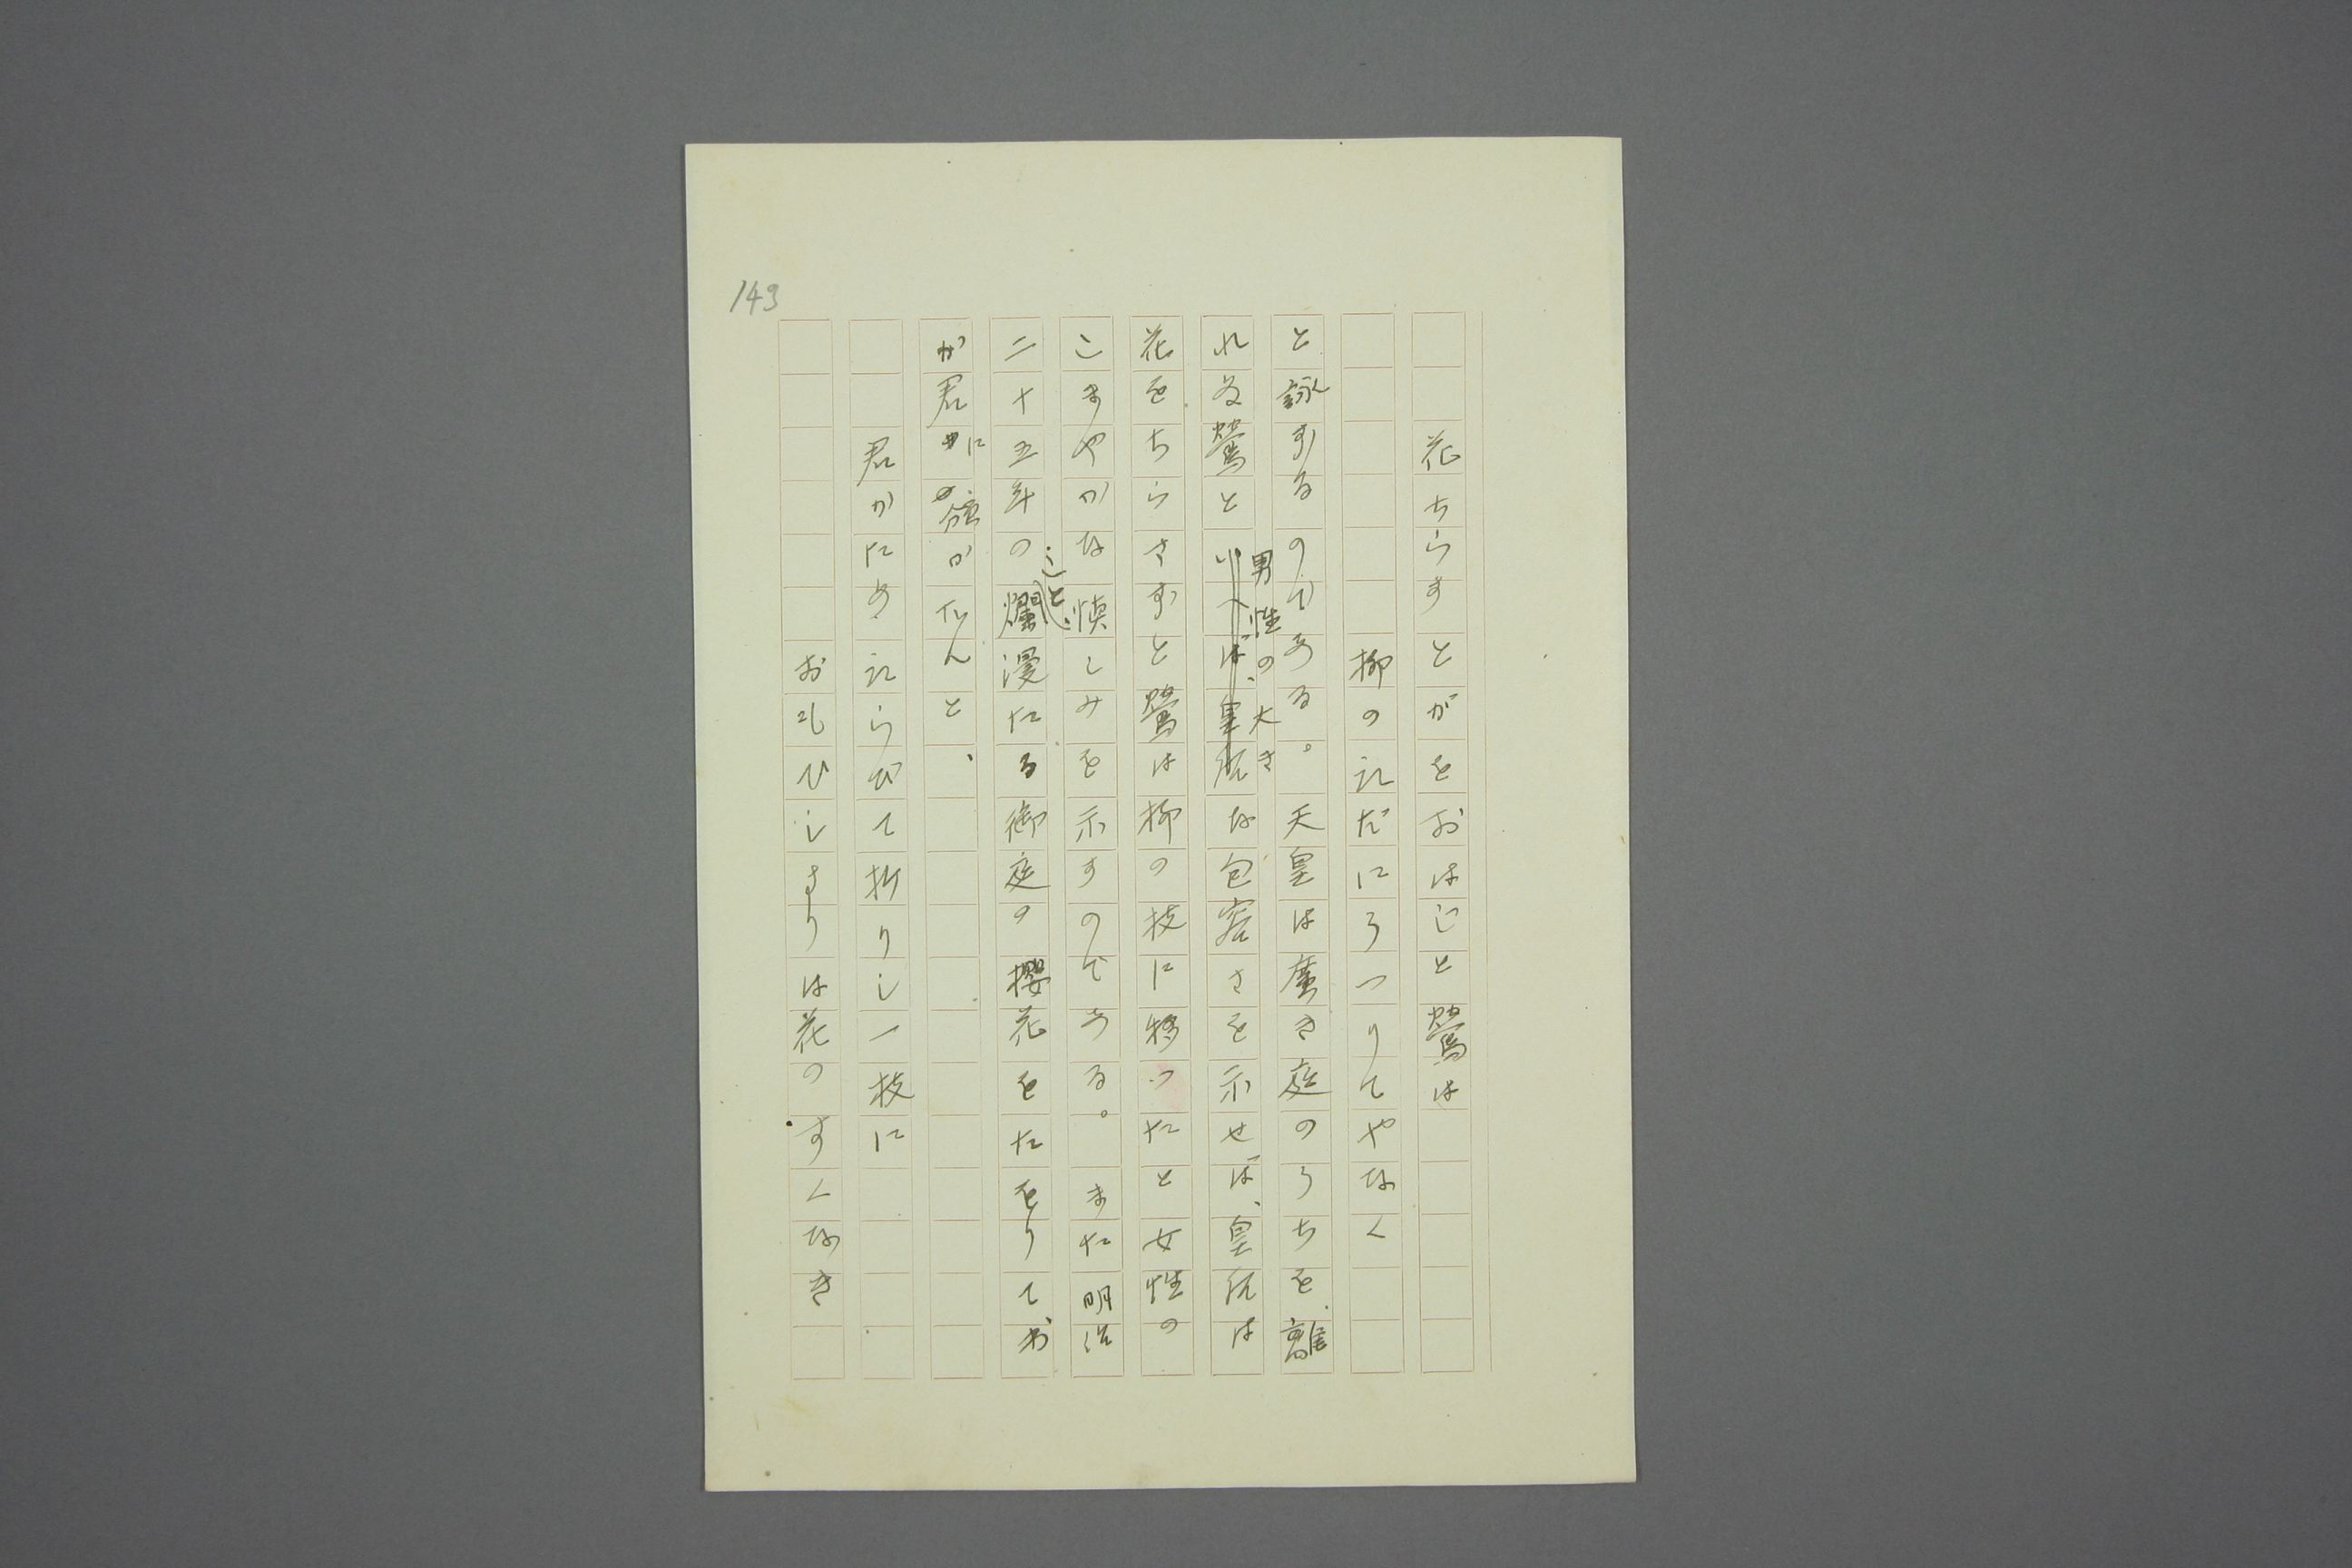 143
花ちらすとがをおはじと鶯は
柳のえだにうつりてやなく
と詠ずるのである。天皇は廣き庭のうちを離
れぬ鶯と男性の大きな包容さを示せば、皇后は
花をちらさずと鶯は柳の枝に移つたと女性の
こまやかな慎しみを示すのである。また明治
二十五年の爛漫たる御庭の櫻花をたをりてわ
が君に分かたんと、
君がためえらびて折りし一枝に
おもひしよりは花のすくなき